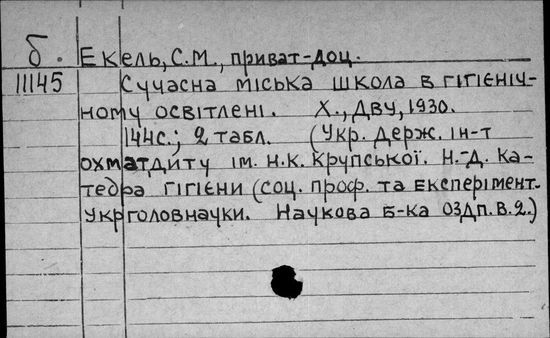 б. Екель, С.М., приват-доц.
11145 Сучасна міська школа в гігієніч-
ному освітлені. Х., ДВУ, 1930.
144с.; 2 табл. (Укр. Держ. ін-т
охматдиту ім. Н.К. Крупської. Н.-Д. Ка-
тедра гігієни (соц. проф. та експерімент.
Укрголовнауки. Наукова б-ка ОЗДП. В.2.)